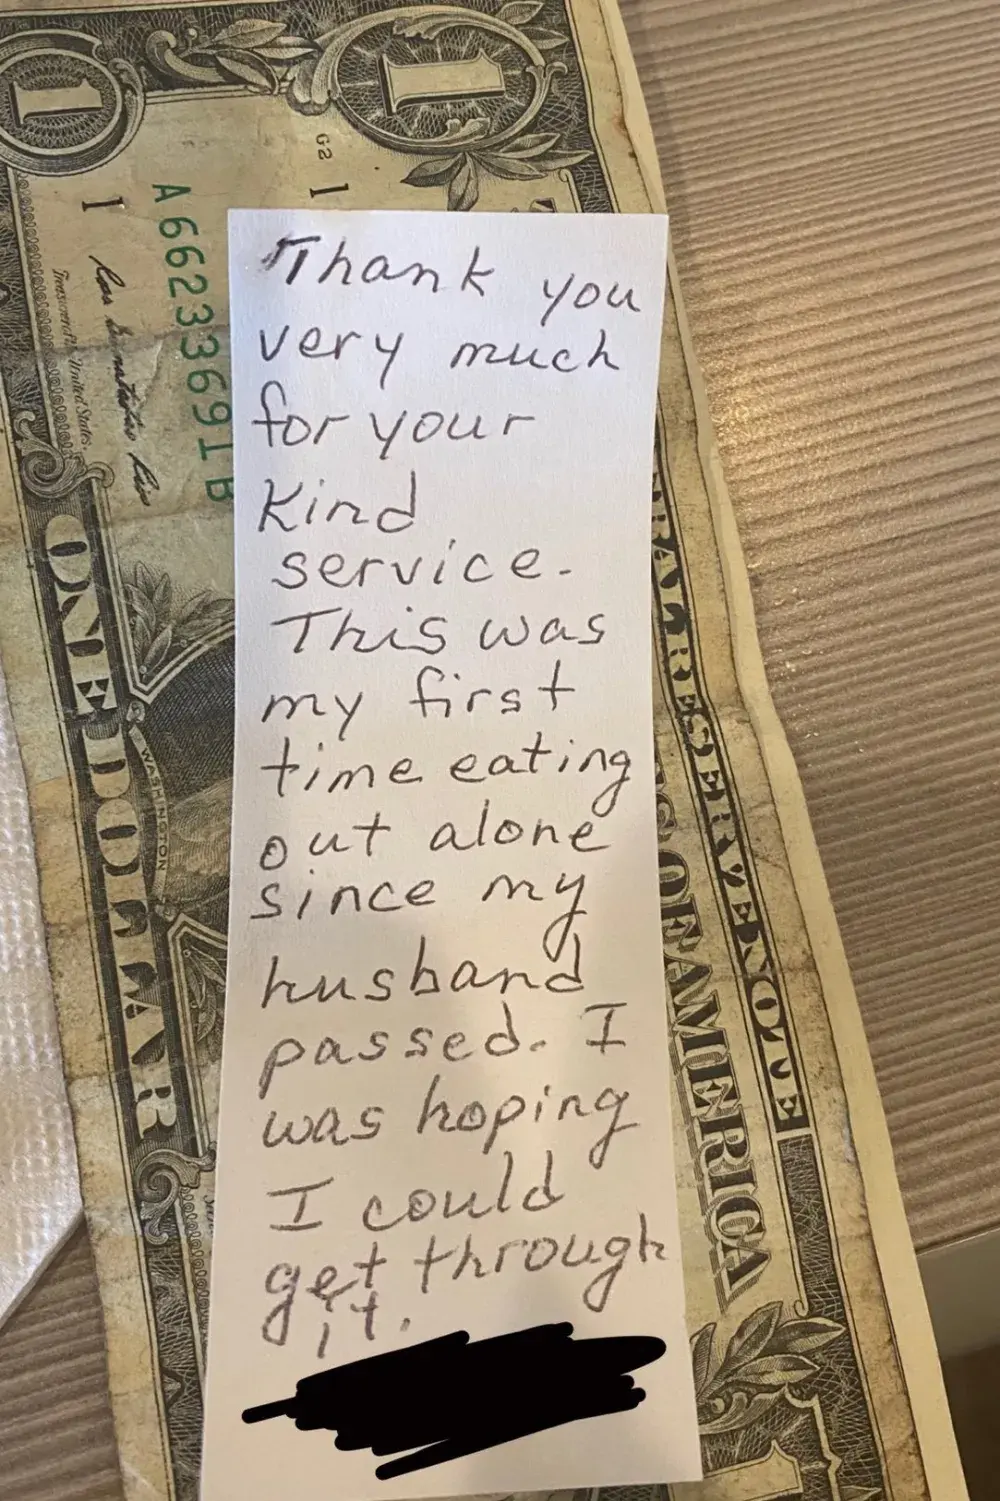 Thank you
very much
for your
kind
service.
This was
my first
time eating
out alone
since my
husband
passed. I
was hoping
I could
get through
it.
1
1
G2
1
A 66233691 B
1
Treasurer of the United States.
ONE DOLLAR
WASHINGTON
FEDERAL RESERVE NOTE
OF AMERICA